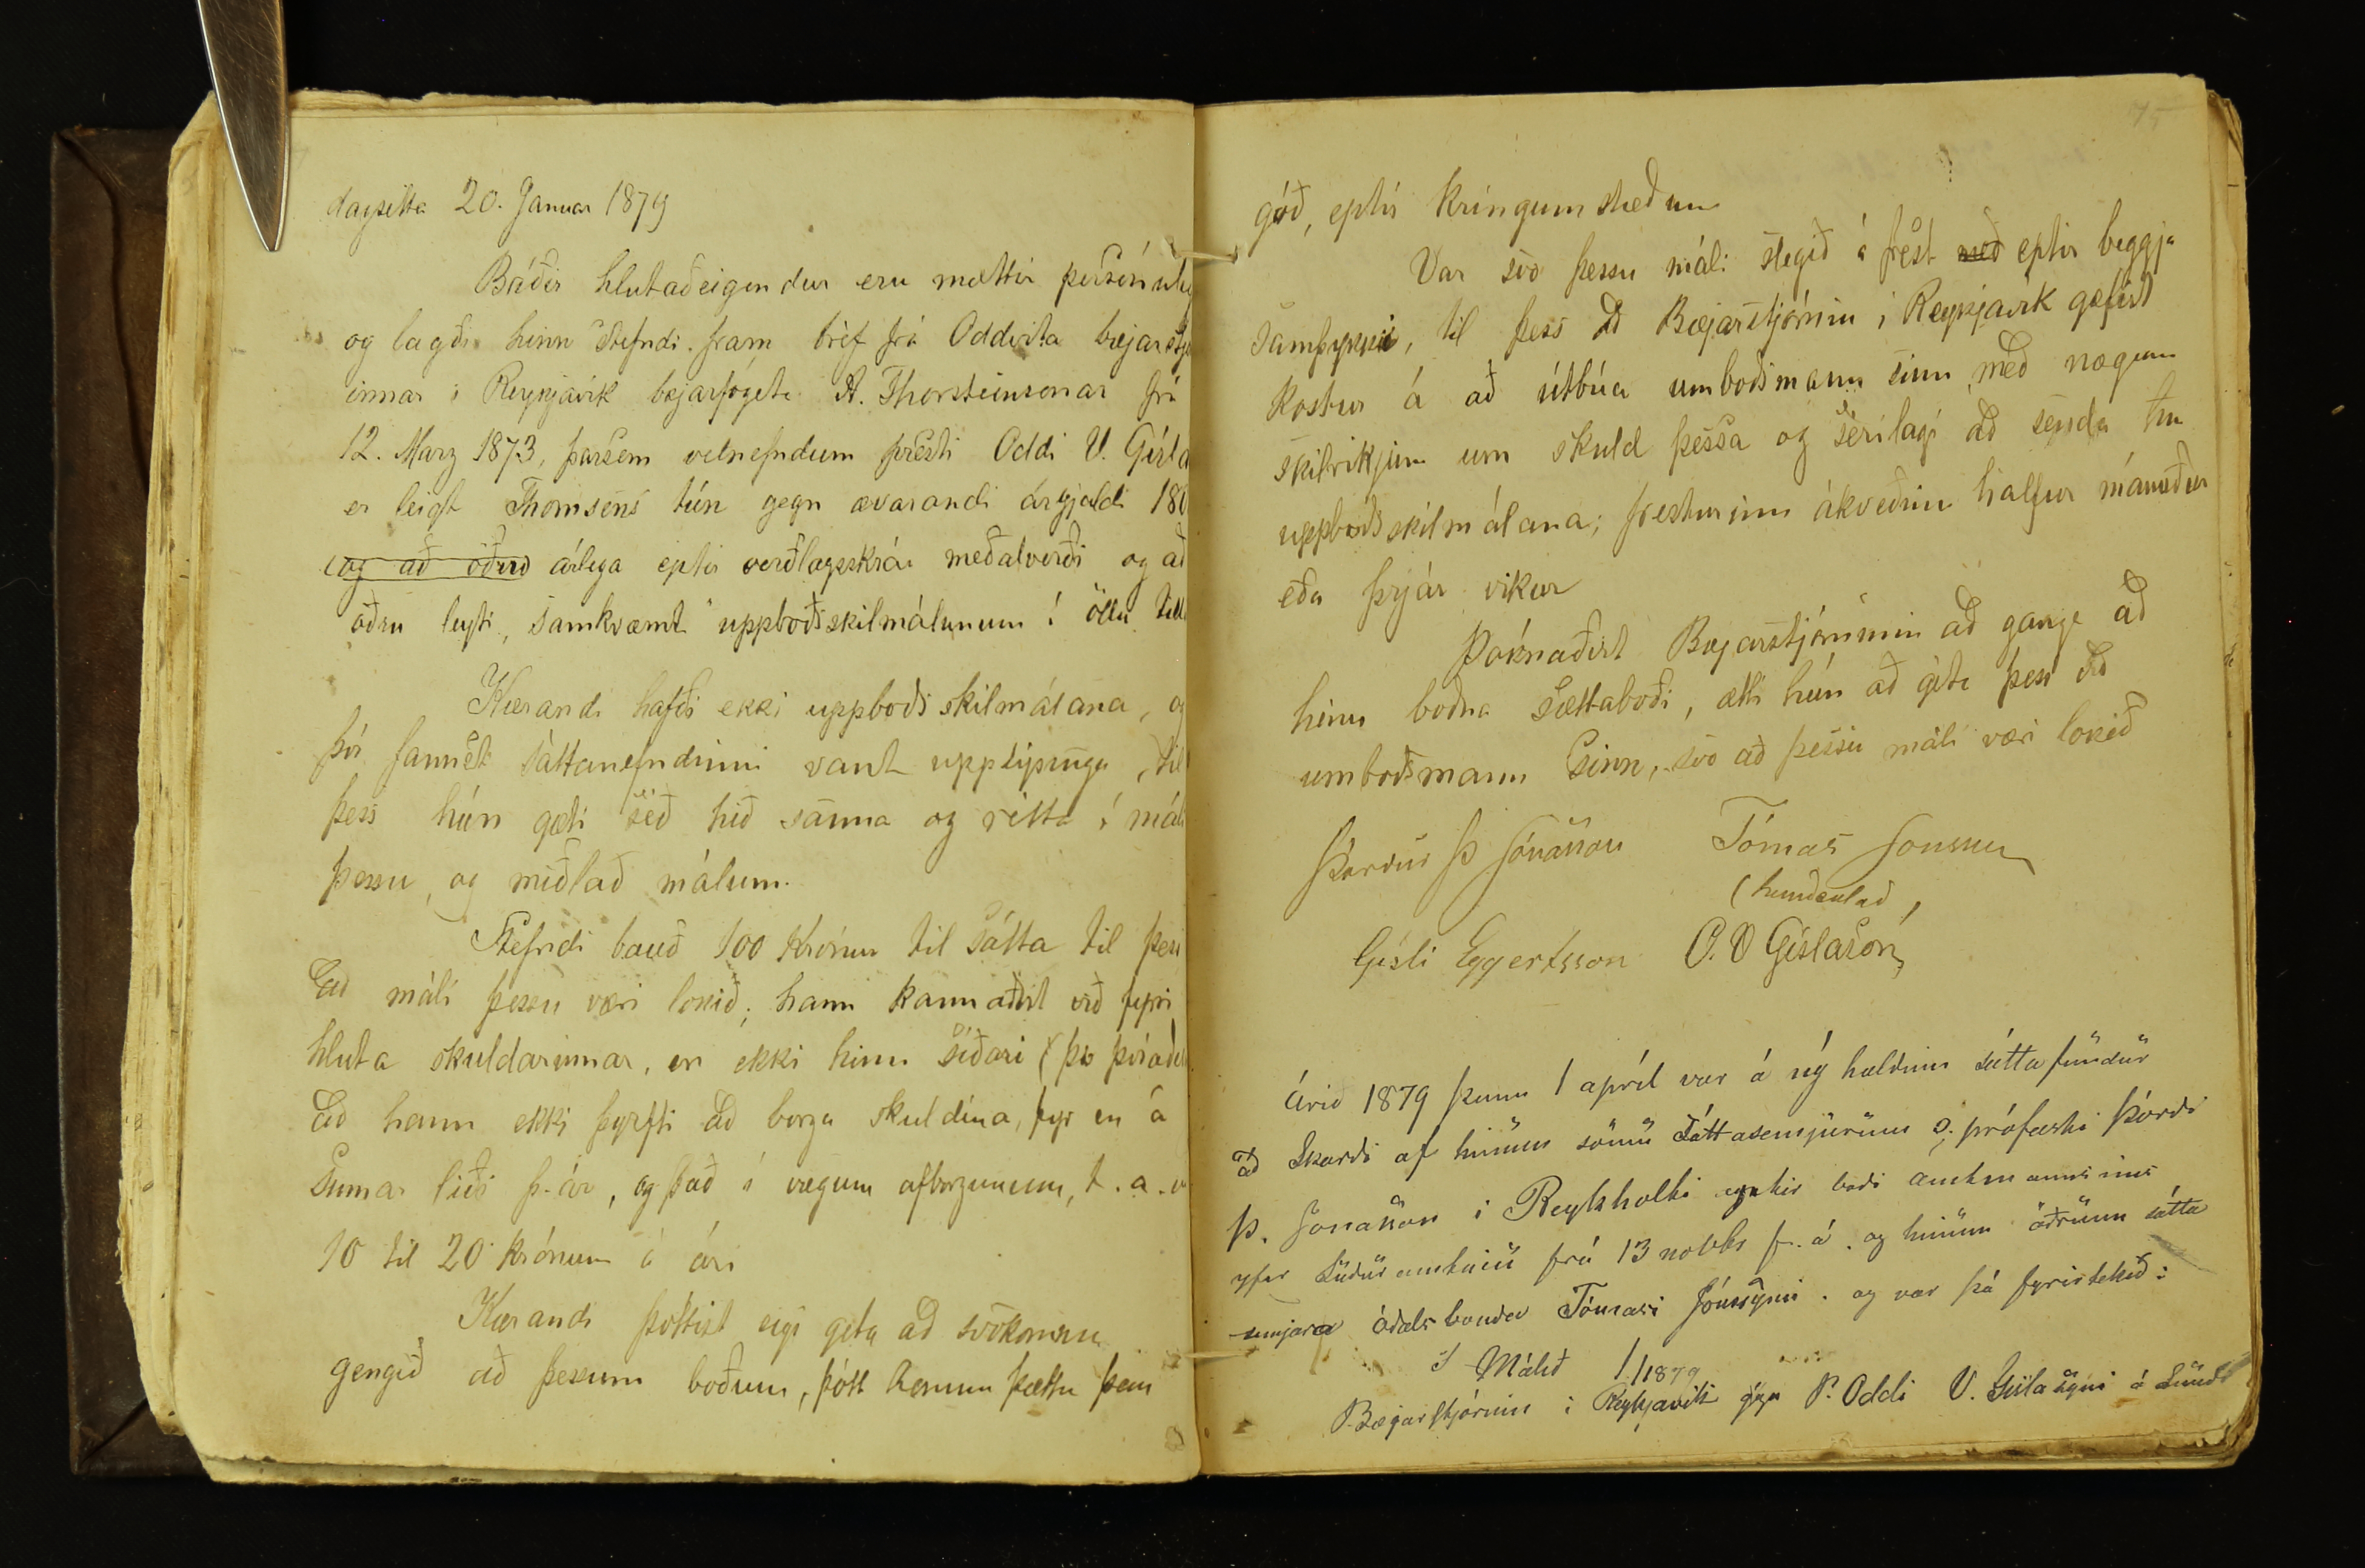 dagsetta 20. Januar 1879
Báðir hlutaðeigendur eru mættir persónuleg
og lagði hinn Stefndi fram bréf frá Oddvita bæjarstjó
innar í Reykjavík bæjarfógeta A. Thorsteinsonar frá
12. Marz 1873, þarsem velnefndum presti Oddi V. Gísla
er leigt Thomsens tún gegn ævarandi árgjaldi 180
og að öðru árlega eptir verðlagsskrár meðalverði og að
öðru leyti, samkvæmt uppboðsskilmálunum í öllu till
Kærandi hafði ekki uppboðsskilmálana, og
því fannst sáttanefndinni vant upplýsinga, til
þess hún gæti séð hið sanna og rétta í máli
þessu, og miðlað málum.
Stefndi bauð 100 Krónur til sátta til þess
að máli þessu væri lokið; hann kannaðist við fyrri
hluta skuldarinnar, en ekki hinn síðari (þó því aðei
að hann ekki þyrfti að borga skuldina, fyr en á
Sumar liði þ. ár, og það í vægum afborgunum, t. a. v
10 til 20 krónum á ári
Kærandi þóttist eigi geta að svokomnu
gengið að þessum boðum, þótt honum þættu þau
75
góð, eptir kringumstæðum
Var svo þessu máli slegið á frest með eptir beggja
samþykki, til þess að Bæjarstjórnin í Reykjavík gæfist
kostur á að útbúa umboðsmann sinn með nægum
skilríkjum um skuld þessa og sérílagi að senda
uppboðsskilmálana; fresturinn ákveðinn halfur mánuður
eða þrjár vikur
Þóknaðist Bæjarstjórninni að ganga að
hinu boðna sættaboði, ætti hún að géta þess við
umboðsmann sinn, svo að þessu máli væri lokið
Þórður Þ Jónasson Tómas Jonsson
(handsalað)
Gísli Eggertsson O. V Gíslason
Árið 1879 þann 1 apríl var á ný haldinn sáttafundur
að Skarði af hinum sömu sáttasemjurum s. prófasti Þórði
Þ. Jonasson í Reykholti eptir boði amtmannsins
yfir Suðuramtinu frá 13 nobbr f. á. og hinum öðrum sátta
semjara óðalsbonda Tómasi Jónssyni. og var þá fyrirtekið:
Málið 1/1879
Bæjarstjórnin i Reykjavík gegn P. Oddi V. Gíslasyni á Lundi